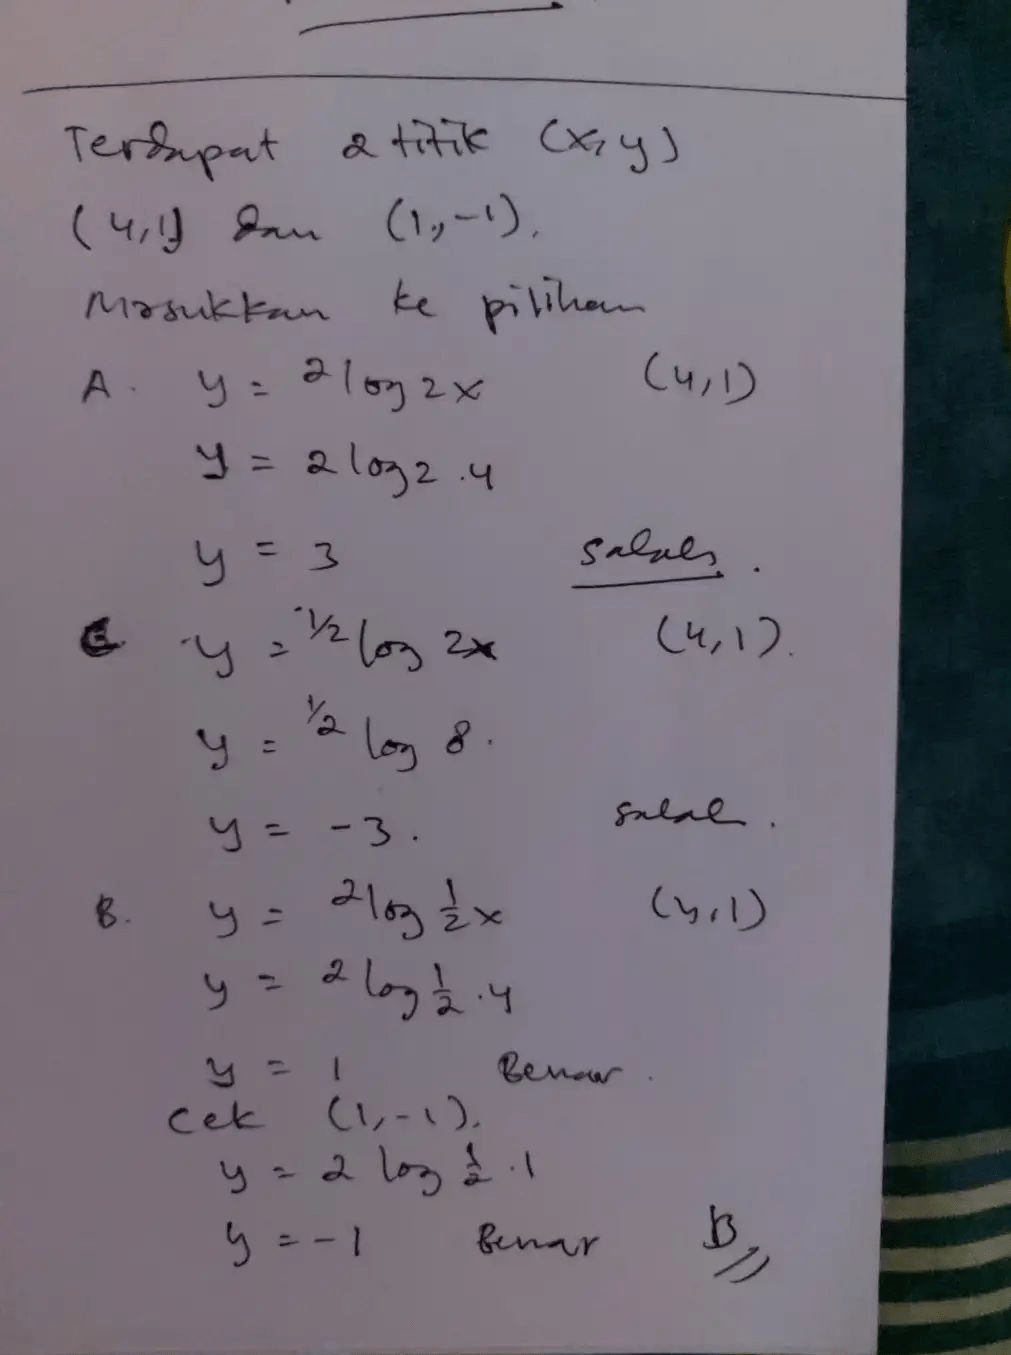 Terdapat 2 titik (x, y)
(4,1) dan (1,-1).
Masukkan ke pilihan
A. y = ²log 2x (4,1)
y = 2 log 2 . 4
y = 3 salah.
C. y = ¹/²log 2x (4,1).
y = ¹/² log 8.
y = -3. salah.
B. y = ²log ½x (4,1)
y = ² log ½ . 4
y = 1 Benar.
Cek (1,-1).
y = 2 log ½ . 1
y = -1 Benar B